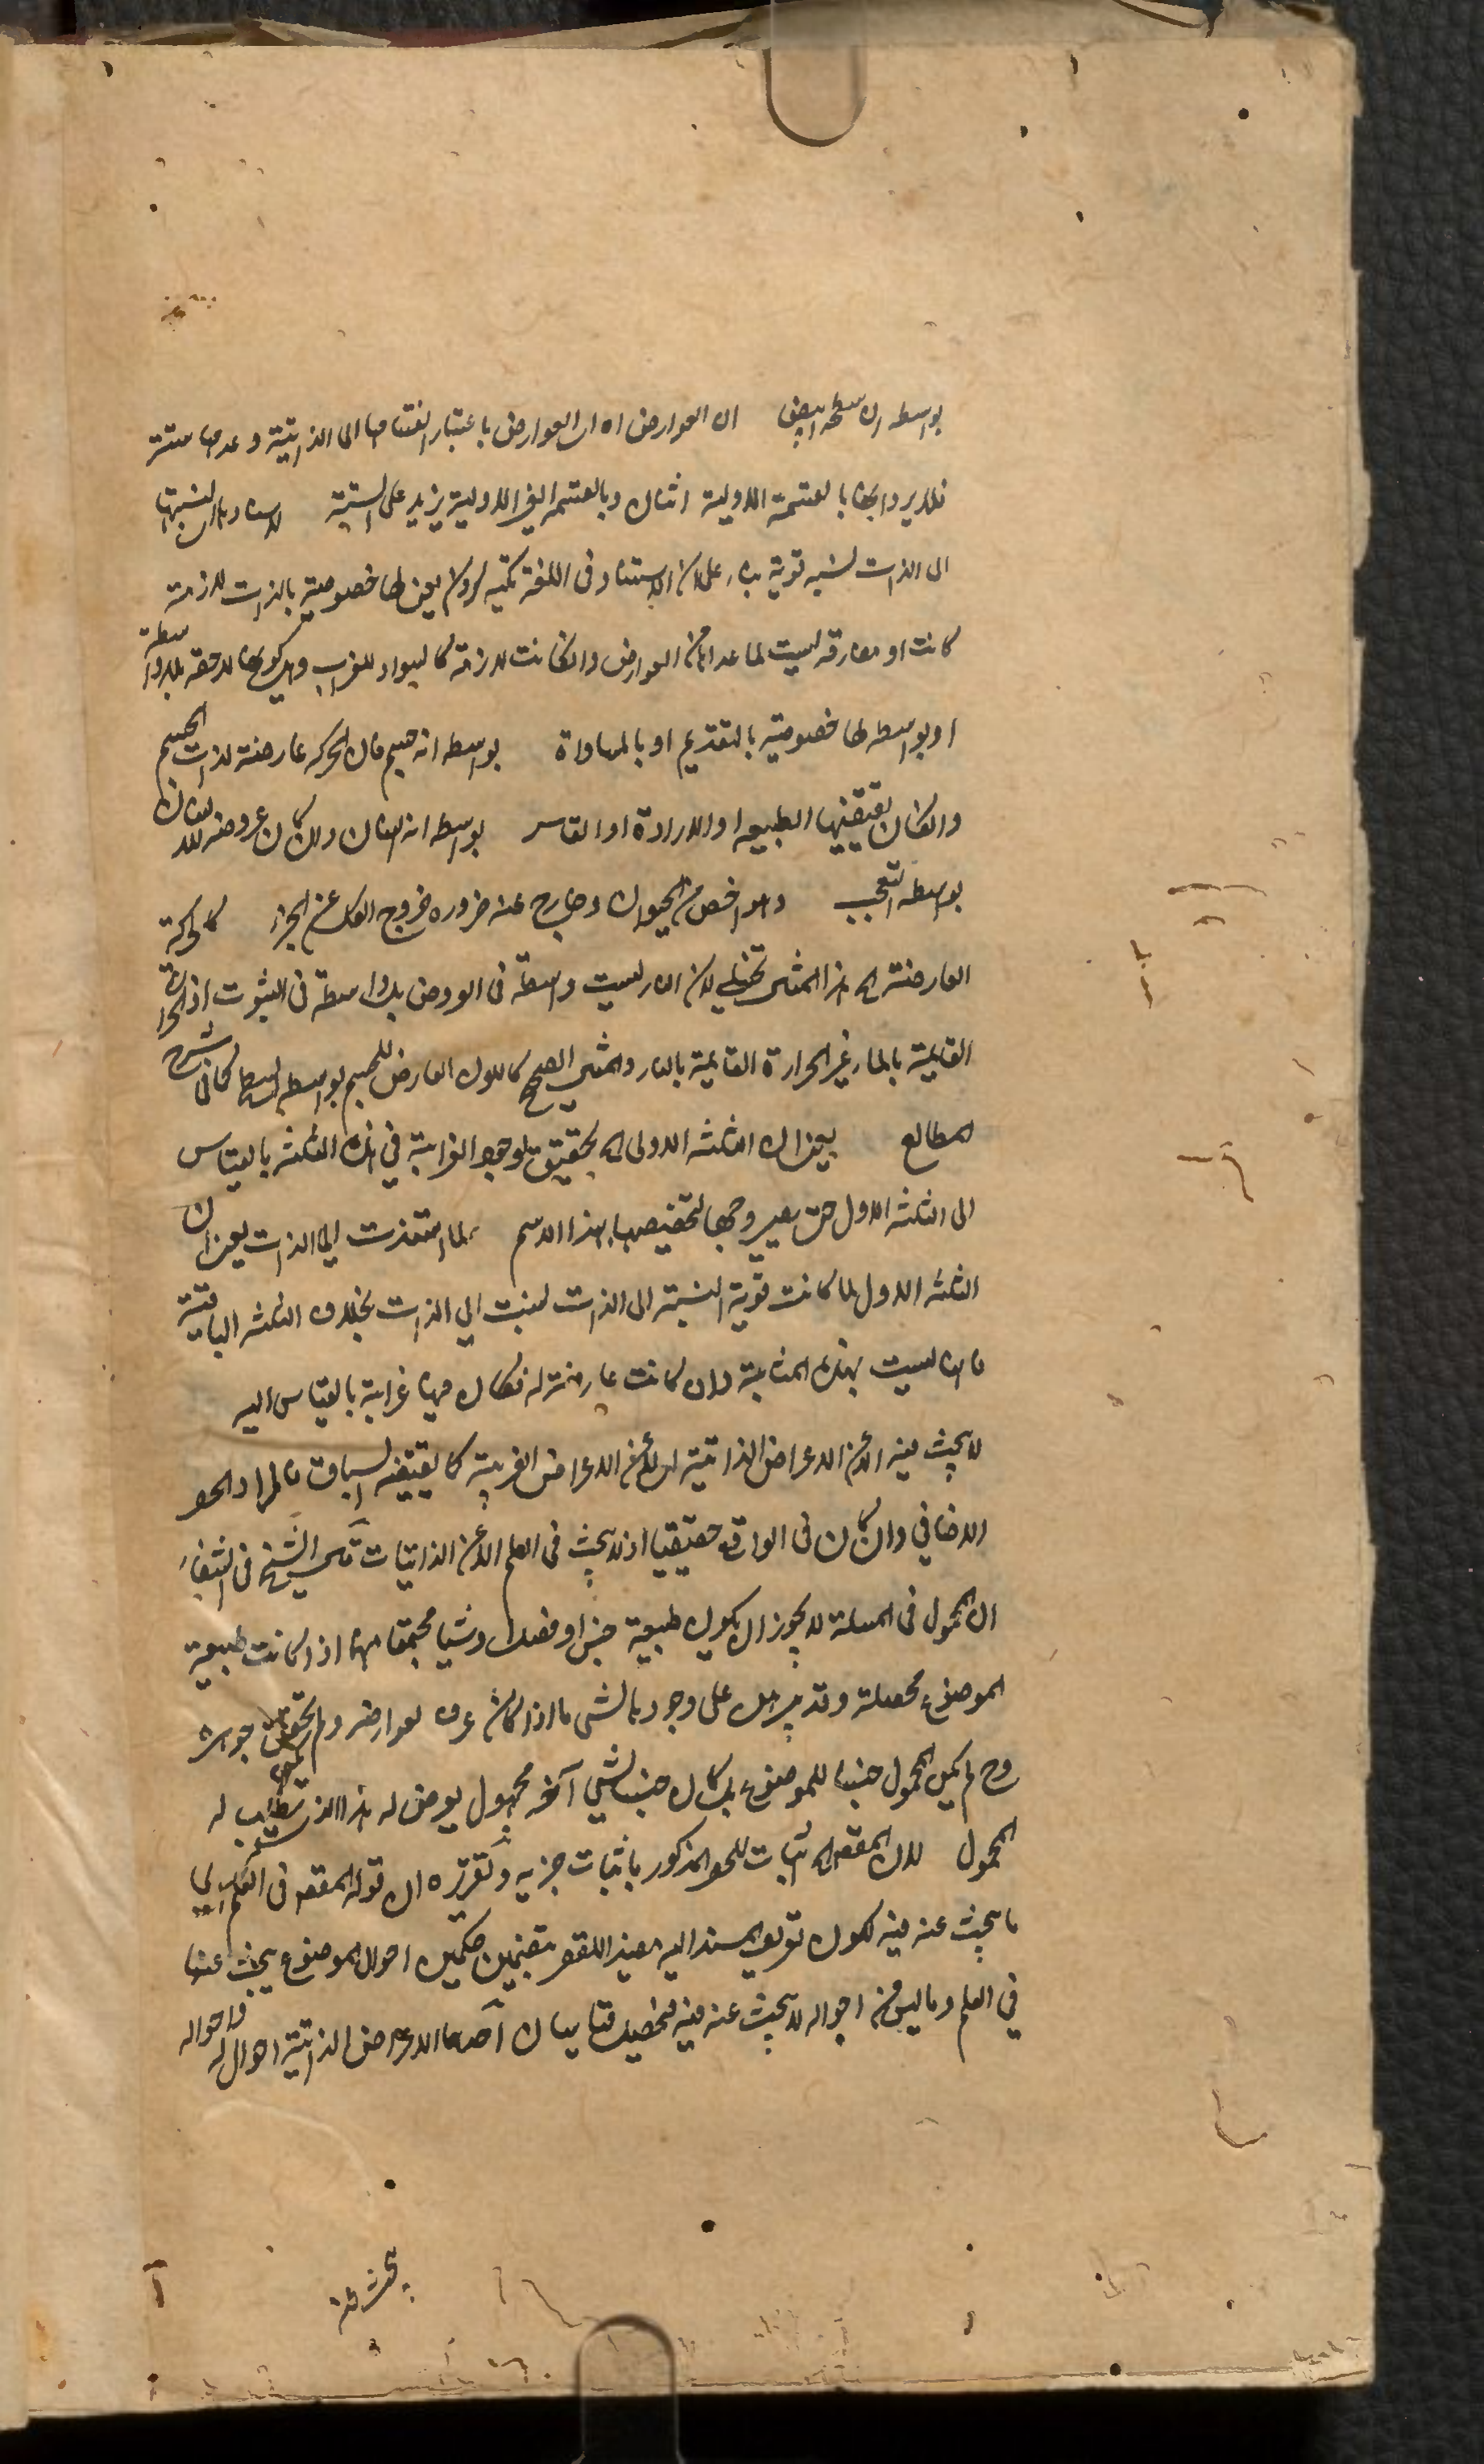 بواسطه ان سطحه ابيض ان العوارض اه اى العوارض باعتبار انقسامها الى الذاتية وعدمها ستة
فلا يرد انها بالقسمة الاولية اثنان وبالقسمة الغير الاولية يزيد على الستة لاستنادها اى لنسبتها
الى الذات نسبة قوية بناء على ان الاستناد فى اللغة تكيه كردن يعنى لها خصوصية بالذات لازمة
كانت او مفارقة ليست لما عداها من العوارض وان كانت لازمة كالسواد للغراب وهى كونها لاحقة بلا واسطة
او بواسطة لها خصوصية بالتقديم او بالمساواة بواسطه انه جسم فان الحركه عارضة لذات الجسم
وان كان يقتضيها الطبيعه او الارادة او القاسر بواسطه انه انسان وان كان عروضه للانسان
بواسطه التعجب وهو اخص من الحيوان وخارج عنه ضروره خروج الكل عن الجزء كالحركة
العارضة اه هذا المثال تخييلى لان النار ليست واسطة فى العروض بل واسطة فى الثبوت اذ الحرارة
القائمة بالماء غير الحرارة القائمة بالنار والمثال الصحيح كاللون العارض للجسم بواسطه السطح كما فى شرح
المطالع يعنى ان الثلثه الاولى اه تحقيق لوجود الغرابة فى هذه الثلثه بالقياس
الى الثلثه الاول حتى يصير وجها لتخصيصها بهذا الاسم لما استندت الى الذات يعنى ان
الثلثه الاول لما كانت قوية النسبة الى الذات نسبت الى الذات بخلاف الثلثه الباقية
فانها ليست بهذه المثابة وان كانت عارضة له فكان فيها غرابة بالقياس اليه
لا يبحث فيه الا عن الاعراض الذاتية اى لا عن الاعراض الغريبة كما يقتضيه السياق فالمراد الحصر
الاضافي وان كان فى الواقع حقيقيا اذ لا يبحث فى العلم الا عن الذاتيات قال الشيخ فى الشفاء
ان المحمول فى المسئلة لا يجوز ان يكون طبيعة جنس او فصل او شيئا مجتمعا منهما اذا كانت طبيعة
الموضوع محصلة وقد يبرهن على وجود ما لشى ما اذا كان عرف بعوارضه ولم يتحقق جوهره
وح لم يكن المحمول جنسا للموضوع بل كان جنسا لشيء آخر مجهول يعرض له هذا الذى يطلب له
المحمول لان المقصود اه اثبات للحصر المذكور باثبات جزئيه وتقريره ان قوله المقصود فى العلم اى
ما يبحث عنه فيه لكون تعريف المسند اليه مفيدا للقصر متضمن حكمين احوال الموضوع يبحث عنها
في العلم وما ليس من احواله لا يبحث عنه فيه فيحصل قياسان احدهما الاعراض الذاتية احوال له واحواله
يبحث عنها